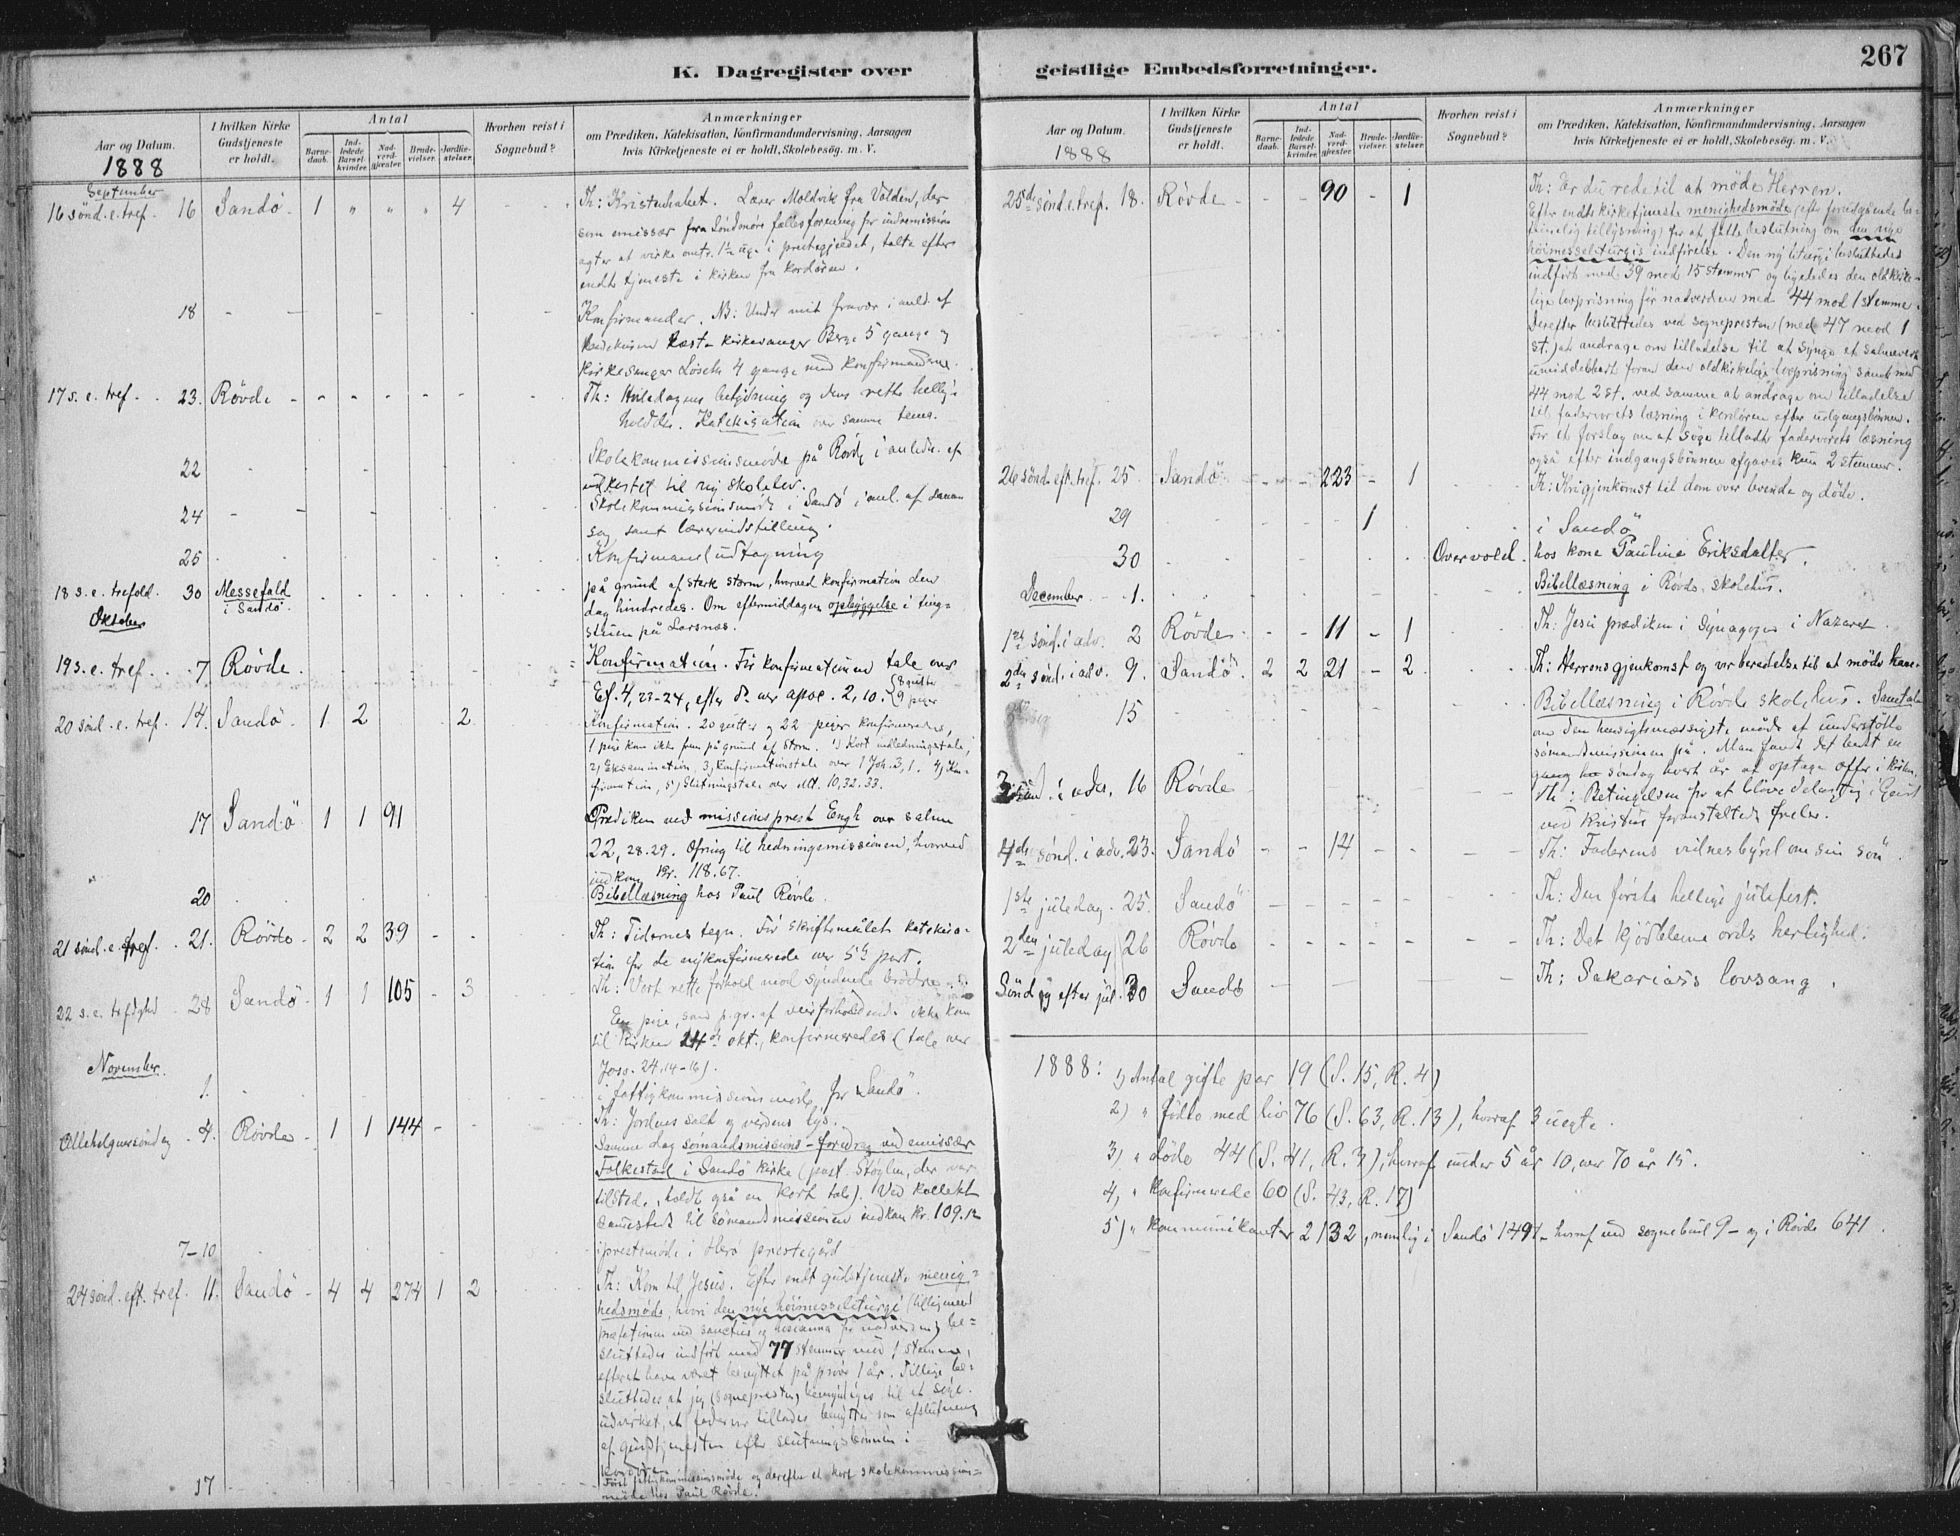 K. Dagregister over
Aar og Datum.
1888
I hvilken Kirke Gudstjeneste er holdt.
Antal
Barne-daab.
Ind-ledede Barsel-kvinder.
Nad-verd-gjester.
Brude-vielser.
Jordfæ-stelser.
Hvorhen reist i Sognebud?
Anmærkninger
om Prædiken, Katekisation, Konfirmandundervisning, Aarsagen
hvis Kirketjeneste ei er holdt, Skolebesøg. m. V.
September
16 sønd. e. tref. 16 Sandø 1 " " " 4 Th: Kristenhabet. Lærer Moldvik fra Volden, der
som emissær fra Søndmøre fællesforening for indremission
agter at virke omtr. 1½ uge i prestegjeldet, talte efter
endt tjeneste i kirken fra kordøren.
18 Konfirmander. NB: Under mit fravær i anl. af
læste kirkesanger Berge 5 gange og
kirkesanger Løseth 4 gange med konfirmanderne.
17 s. e. tref. 23. Røvde Th: Hviledagens betydning og dens rette hellig-
holdelse. Katekisation over samme tema.
22 Skolekommissionsmøde på Røvde i anledn. af
udkastet til ny skolelov.
24 Skolekommissionsmøde i Sandø i anl. af samme
sag, samt lærerindstilling.
25 Konfirmandudtagning
18 s. e. trefold. 30 Messefald i Sandø. på grund af sterk storm, hvorved konfirmation den
dag hindredes. Om eftermiddagen opbyggelse i ting-
stuen på Larsnæs.
Oktober
19 s. e. tref. 7 Røvde Konfirmation. Før konfirmationen tale over
Ef. 4, 23-24, efter do over apoc. 2, 10. {8 gutter 9 piger
20 sønd. e. tref. 14. Sandø 1 2 2 Konfirmation. 20 gutter og 22 piger konfirmeredes,
1 pige kom ikke frem på grund af storm. 1) Kort indledningstale,
2) Eksamination, 3) Konfirmationstale over 1 Joh. 3, 1. 4) Kon-
firmation, 5) Slutningstale over Mt. 10, 32. 33.
17 Sandø 1 1 91 Prædiken ved missionsprest Engh over salme
22, 28. 29. Ofring til hedningemissionen, hvorved
indkom Kr. 118.67.
20 Bibellæsning hos Paul Røvde.
21 sønd. e. tref. 21. Røvde 2 2 39 Th: Tidernes tegn. Før skriftemålet katekisa-
tion for de nykonfirmerede over 5te part.
22 s. e. trefoldighed 28 Sandø 1 1 105 - 3 Th: Vort rette forhold mod syndende brødre.
En pige, som p. gr. af veirforhold ikke kom
til kirken 14de okt., konfirmeredes (tale over
Jos. 24. 14-16).
November.
1. i fattigkommissionsmøde for Sandø.
Allehelgenssøndag 4. Røvde 1 1 144 Th: Jordens salt og verdens lys.
Samme dag sømandsmissions-foredrag ved emissær
Folkestad i Sandø kirke (past. Støylen, der var
tilsted, holdt også en kort tale). Ved kollekt
sammesteds til sømandsmissionen indkom kr. 109.12
7-10 i prestemøde i Herø prestegård
24 sønd. eft. tref. 11. Sandø 4 4 274 1 2 Th: Kom til Jesus. Efter endt gudstjeneste menig-
hedsmøde, hvori den nye høimesseliturgi (tilligemed
præfationen med sanctus og hosianna før nadveren) be-
sluttedes indført med 77 stemmer mod 1 stemme,
efterat have været benyttet på prøve 1 år. Tillige be-
sluttedes at jeg (sognepresten) bemyndiges til at søge
udvirket, at fadervor tillades benyttet som afslutning
af gudstjenesten efter slutningsbønnen i
kordøren.
17 Først fattigkommissionsmøde og derefter et kort skolekommissions-
møde hos Paul Røvde.
geistlige Embedsforretninger.
267
Aar og Datum.
1888
I hvilken Kirke Gudstjeneste er holdt.
Antal
Barne-daab.
Ind-ledede Barsel-kvinder.
Nad-verd-gjester.
Brude-vielser.
Jordfæ-stelser.
Hvorhen reist i Sognebud?
Anmærkninger
om Prædiken, Katekisation, Konfirmandundervisning, Aarsagen
hvis Kirketjeneste ei er holdt, Skolebesøg. m. V.
25de sønd. e. tref. 18. Røvde - - 90 - 1 Th: Er du rede til at møde Herren.
Efter endt kirketjeneste menighedsmøde (efter foregående be-
timelig tillysning) for at fatte beslutning om den nye
høimesseliturgis indførelse. Den ny liturgi besluttedes
indført med 39 mod 15 stemmer og ligeledes den oldkirke-
lige lovprisning før nadverden med 44 mod 1 stemme.
Derefter besluttedes ved sognepresten (med 47 mod 1
st.) at andrage om tilladelse til at synge et salmevers
umiddelbart foran den oldkirkelige lovprisning samt med
44 mod 2 st. ved samme at andrage om tilladelse
til fadervorets læsning i kordøren efter udgangsbønnen.
For et forslag om at søge tilladt fadervorets læsning
også efter indgangsbønnen afgaves kun 2 stemmer.
26 sønd. eft. tref. 25. Sandø - - 223 - 1 Th: Kr. gjenkomst til dom over levende og døde.
29 1 i Sandø
30 Overvold. hos kone Pauline Eriksdatter.
December 1. Bibellæsning i Røvde skolehus.
1ste sønd. i adv. 2 Røvde - - 11 - 1 Th: Jesu prædiken i synagogen i Nazaret.
2den sønd. i adv. 9. Sandø 2 2 21 - 2 Th: Herrens gjenkomst og vor beredelse til at møde ham.
15 Bibellæsning i Røvde skolehus. Samtale
om den hensigtsmæssigste måde at understøtte
sømandsmissionen på. Man fandt det bedst en
søndag hvert år at optage offer i kirken.
3 sønd. i adv. 16 Røvde Th: Betingelsen for at blive delagtig i
ved Kristus foranstaltede frelse.
4de sønd. i adv. 23. Sandø - - 14 Th: Faderens vidnesbyrd om sin søn.
1ste juledag. 25. Sandø Th: Den første hellige julefest.
2den juledag 26 Røvde Th: Det kjødblevne ords herlighed.
Søndag efter jul. 30 Sandø Th: Sakarias's lovsang.
1888: 1) Antal gifte par 19 (S. 15, R. 4)
2) " fødte med liv 76 (S. 63, R. 13), hvoraf 3 uegte.
3) " døde 44 (S. 41, R. 3), hvoraf under 5 år 10, over 70 år 15.
4) " Konfirmerede 60 (S. 43, R. 17)
5) " kommunikanter 2132, nemlig i Sandø 1491 - hvoraf ved sognebud 9 - og i Røvde 641.